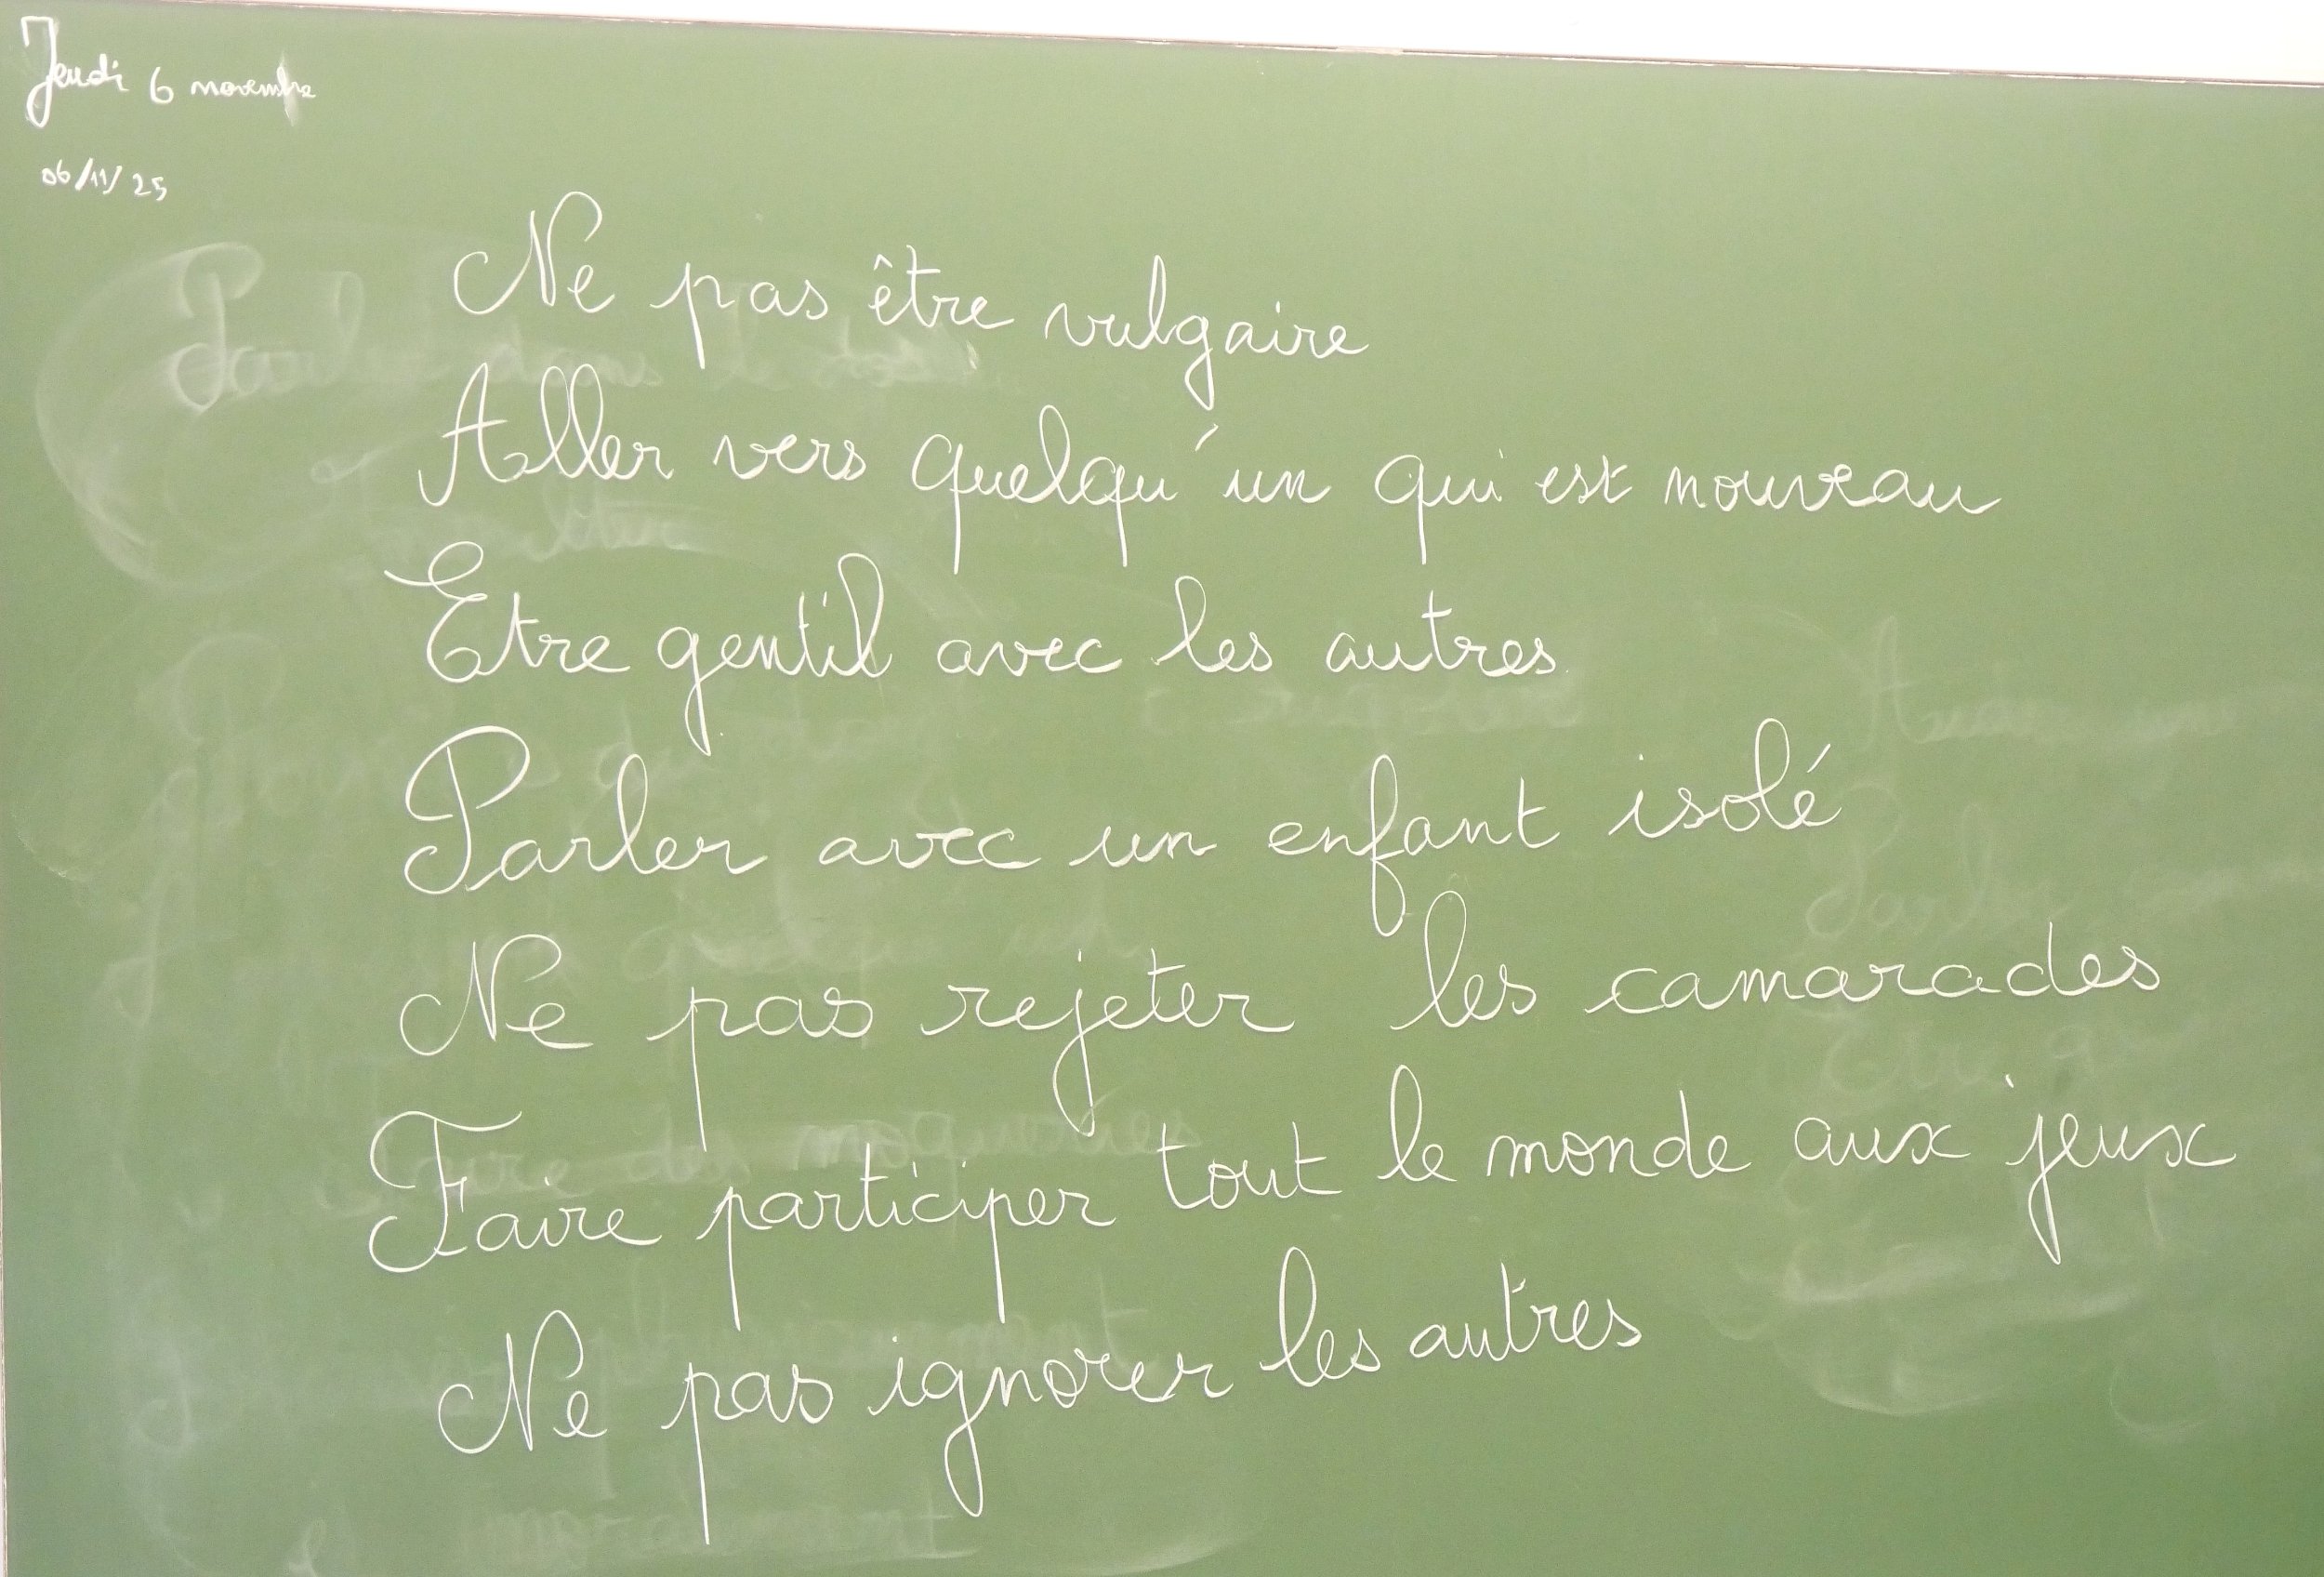 Jeudi 6 novembre
06/11/25
Ne pas être vulgaire
Aller vers quelqu'un qui est nouveau
Etre gentil avec les autres
Parler avec un enfant isolé
Ne pas rejeter les camarades
Faire participer tout le monde aux jeux
Ne pas ignorer les autres